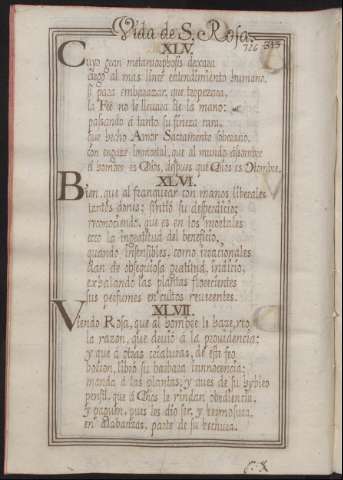 Vida de S. Rosa.
XLV.
726 335
Cuyo gran metamorphosis dexara
ciego al mas lince entendimiento humano,
si para embarazar, que tropezara,
la Fee no le llevara de la mano:
passando á tanto su fineza rara,
que hecho Amor Sacramento soberano,
con engaze immortal, que al mundo assombre
el hombre es Dios, despues que Dios es Hombre.
XLVI.
Bien, que al franquear con manos liberales
tantos dones; sintió su desperdicio;
reconociendo, que es en los mortales
eco la ingratitud del beneficio,
quando insensibles, como irracionales
dan de obsequiosa gratitud, indicio,
exhalando las plantas florecientes
sus perfumes en cultos reverentes.
XLVII.
Viendo Rosa, que al hombre le haze, reo
la razon, que devió á la providencia;
y que á otras criaturas, de tan feo
borron, libró su barbara innocencia;
manda á las plantas, y aves de su hybleo
pensil, que á Dios le rindan obediencia,
y paguen, pues les dió ser, y hermosura,
en alabanzas, parte de su hechura.